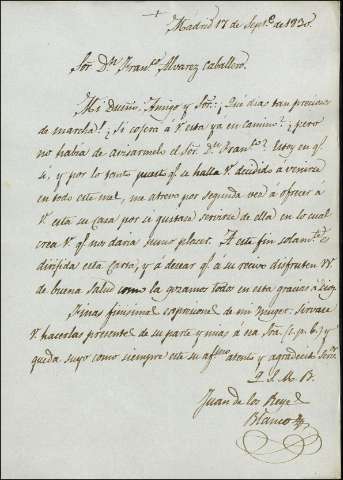 +
Madrid 17 de Sept.e de 1830.
Sor. Dn. Fran.co Alvarez Caballero.
Mi Dueño Amigo y Sor: ¡Qué dias tan preciosos
de marcha! ¿Si cojera á V. esta ya en camino? ¿pero
no habia de avisarmelo el Sor. Dn. Fran.co? Estoy en q.e
si, y por lo tanto puesto q.e se halla V. decidido á venirse
en todo este mes, me atrevo por segunda vez á ofrecer a
V. esta su Casa por si gustan servirse de ella en lo cual
crea V. q.e nos dara sumo placer. A este fin solam.te es
dirijida esta Carta, y á desear q.e á su recivo disfruten VV.
de buena salud como la gozamos todos en esta gracias á Dios.
Finas finisimas expresiones de mi muger: sirvase
V. hacerlas presentes de su parte y mias á esa Sra. (c. p. b.) y
queda suyo como siempre este su af.mo atento y agradecid. Serv.r
Q. S. M. B.
Juan de los Reyes
Blanco